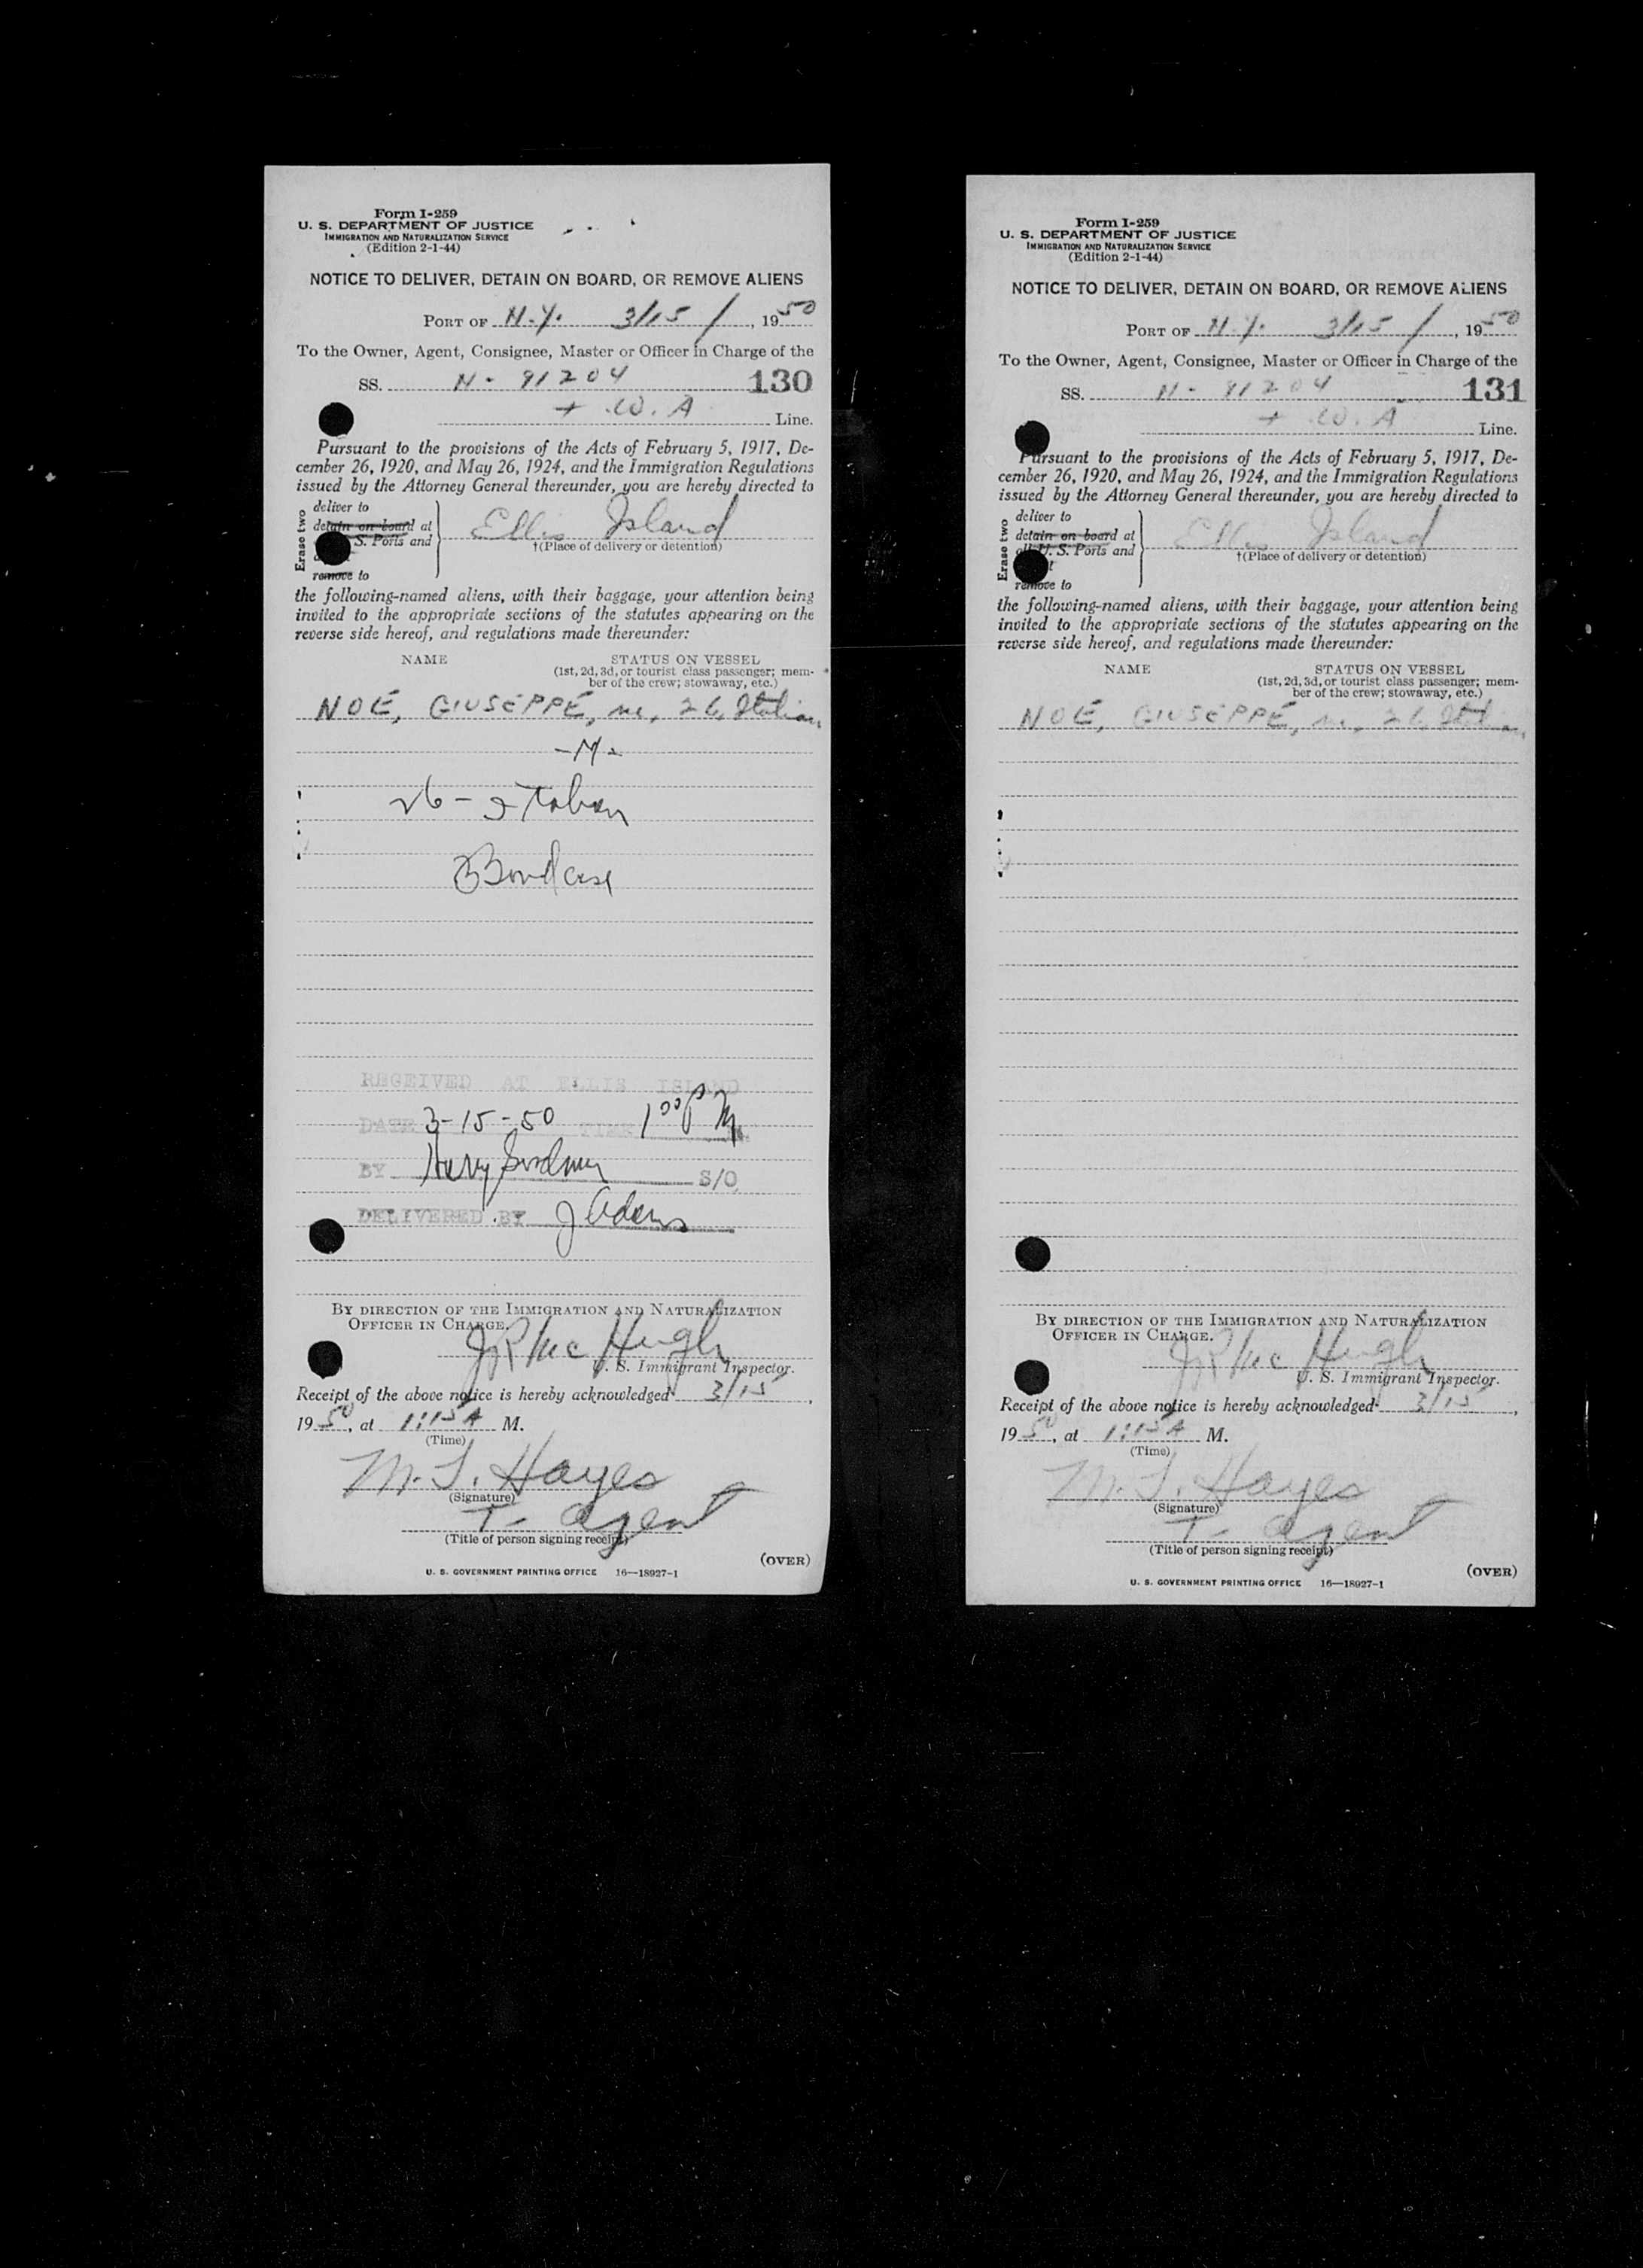 Form I-259
U. S. DEPARTMENT OF JUSTICE
IMMIGRATION AND NATURALIZATION SERVICE
(Edition 2-1-44)
NOTICE TO DELIVER, DETAIN ON BOARD, OR REMOVE ALIENS
PORT OF N.Y. 3/15/, 1950
To the Owner, Agent, Consignee, Master or Officer in Charge of the
SS. N-91204 130
W. A Line.
Pursuant to the provisions of the Acts of February 5, 1917, De-
cember 26, 1920, and May 26, 1924, and the Immigration Regulations
issued by the Attorney General thereunder, you are hereby directed to
Erase two
deliver to
detain on board at
S. Ports and
remove to
Ellis Island
†(Place of delivery or detention)
the following-named aliens, with their baggage, your attention being
invited to the appropriate sections of the statutes appearing on the
reverse side hereof, and regulations made thereunder:
NAME STATUS ON VESSEL
(1st, 2d, 3d, or tourist class passenger; mem-
ber of the crew; stowaway, etc.)
NOE, GIUSEPPE, m, 26, Italian
-M-
26 - Italian
Bond case
RECEIVED AT ELLIS ISLAND
DATE 3-15-50 TIME 1 00 P M
BY Harry S/O
DELIVERED BY J Adams
BY DIRECTION OF THE IMMIGRATION AND NATURALIZATION
OFFICER IN CHARGE.
J R McHugh
U. S. Immigrant Inspector.
Receipt of the above notice is hereby acknowledged 3/15,
1950, at 1:15 A M.
(Time)
M. J. Hayes
(Signature)
T- agent
(Title of person signing receipt)
(OVER)
U. S. GOVERNMENT PRINTING OFFICE 16—18927-1
Form I-259
U. S. DEPARTMENT OF JUSTICE
IMMIGRATION AND NATURALIZATION SERVICE
(Edition 2-1-44)
NOTICE TO DELIVER, DETAIN ON BOARD, OR REMOVE ALIENS
PORT OF N.Y. 3/15/, 1950
To the Owner, Agent, Consignee, Master or Officer in Charge of the
SS. N-91204 131
W. A Line.
Pursuant to the provisions of the Acts of February 5, 1917, De-
cember 26, 1920, and May 26, 1924, and the Immigration Regulations
issued by the Attorney General thereunder, you are hereby directed to
Erase two
deliver to
detain on board at
all U. S. Ports and
remove to
Ellis Island
†(Place of delivery or detention)
the following-named aliens, with their baggage, your attention being
invited to the appropriate sections of the statutes appearing on the
reverse side hereof, and regulations made thereunder:
NAME STATUS ON VESSEL
(1st, 2d, 3d, or tourist class passenger; mem-
ber of the crew; stowaway, etc.)
NOE, GIUSEPPE, m, 26, Italian
BY DIRECTION OF THE IMMIGRATION AND NATURALIZATION
OFFICER IN CHARGE.
J R McHugh
U. S. Immigrant Inspector.
Receipt of the above notice is hereby acknowledged 3/15,
1950, at 1:15 A M.
(Time)
M. J. Hayes
(Signature)
T- agent
(Title of person signing receipt)
(OVER)
U. S. GOVERNMENT PRINTING OFFICE 16—18927-1